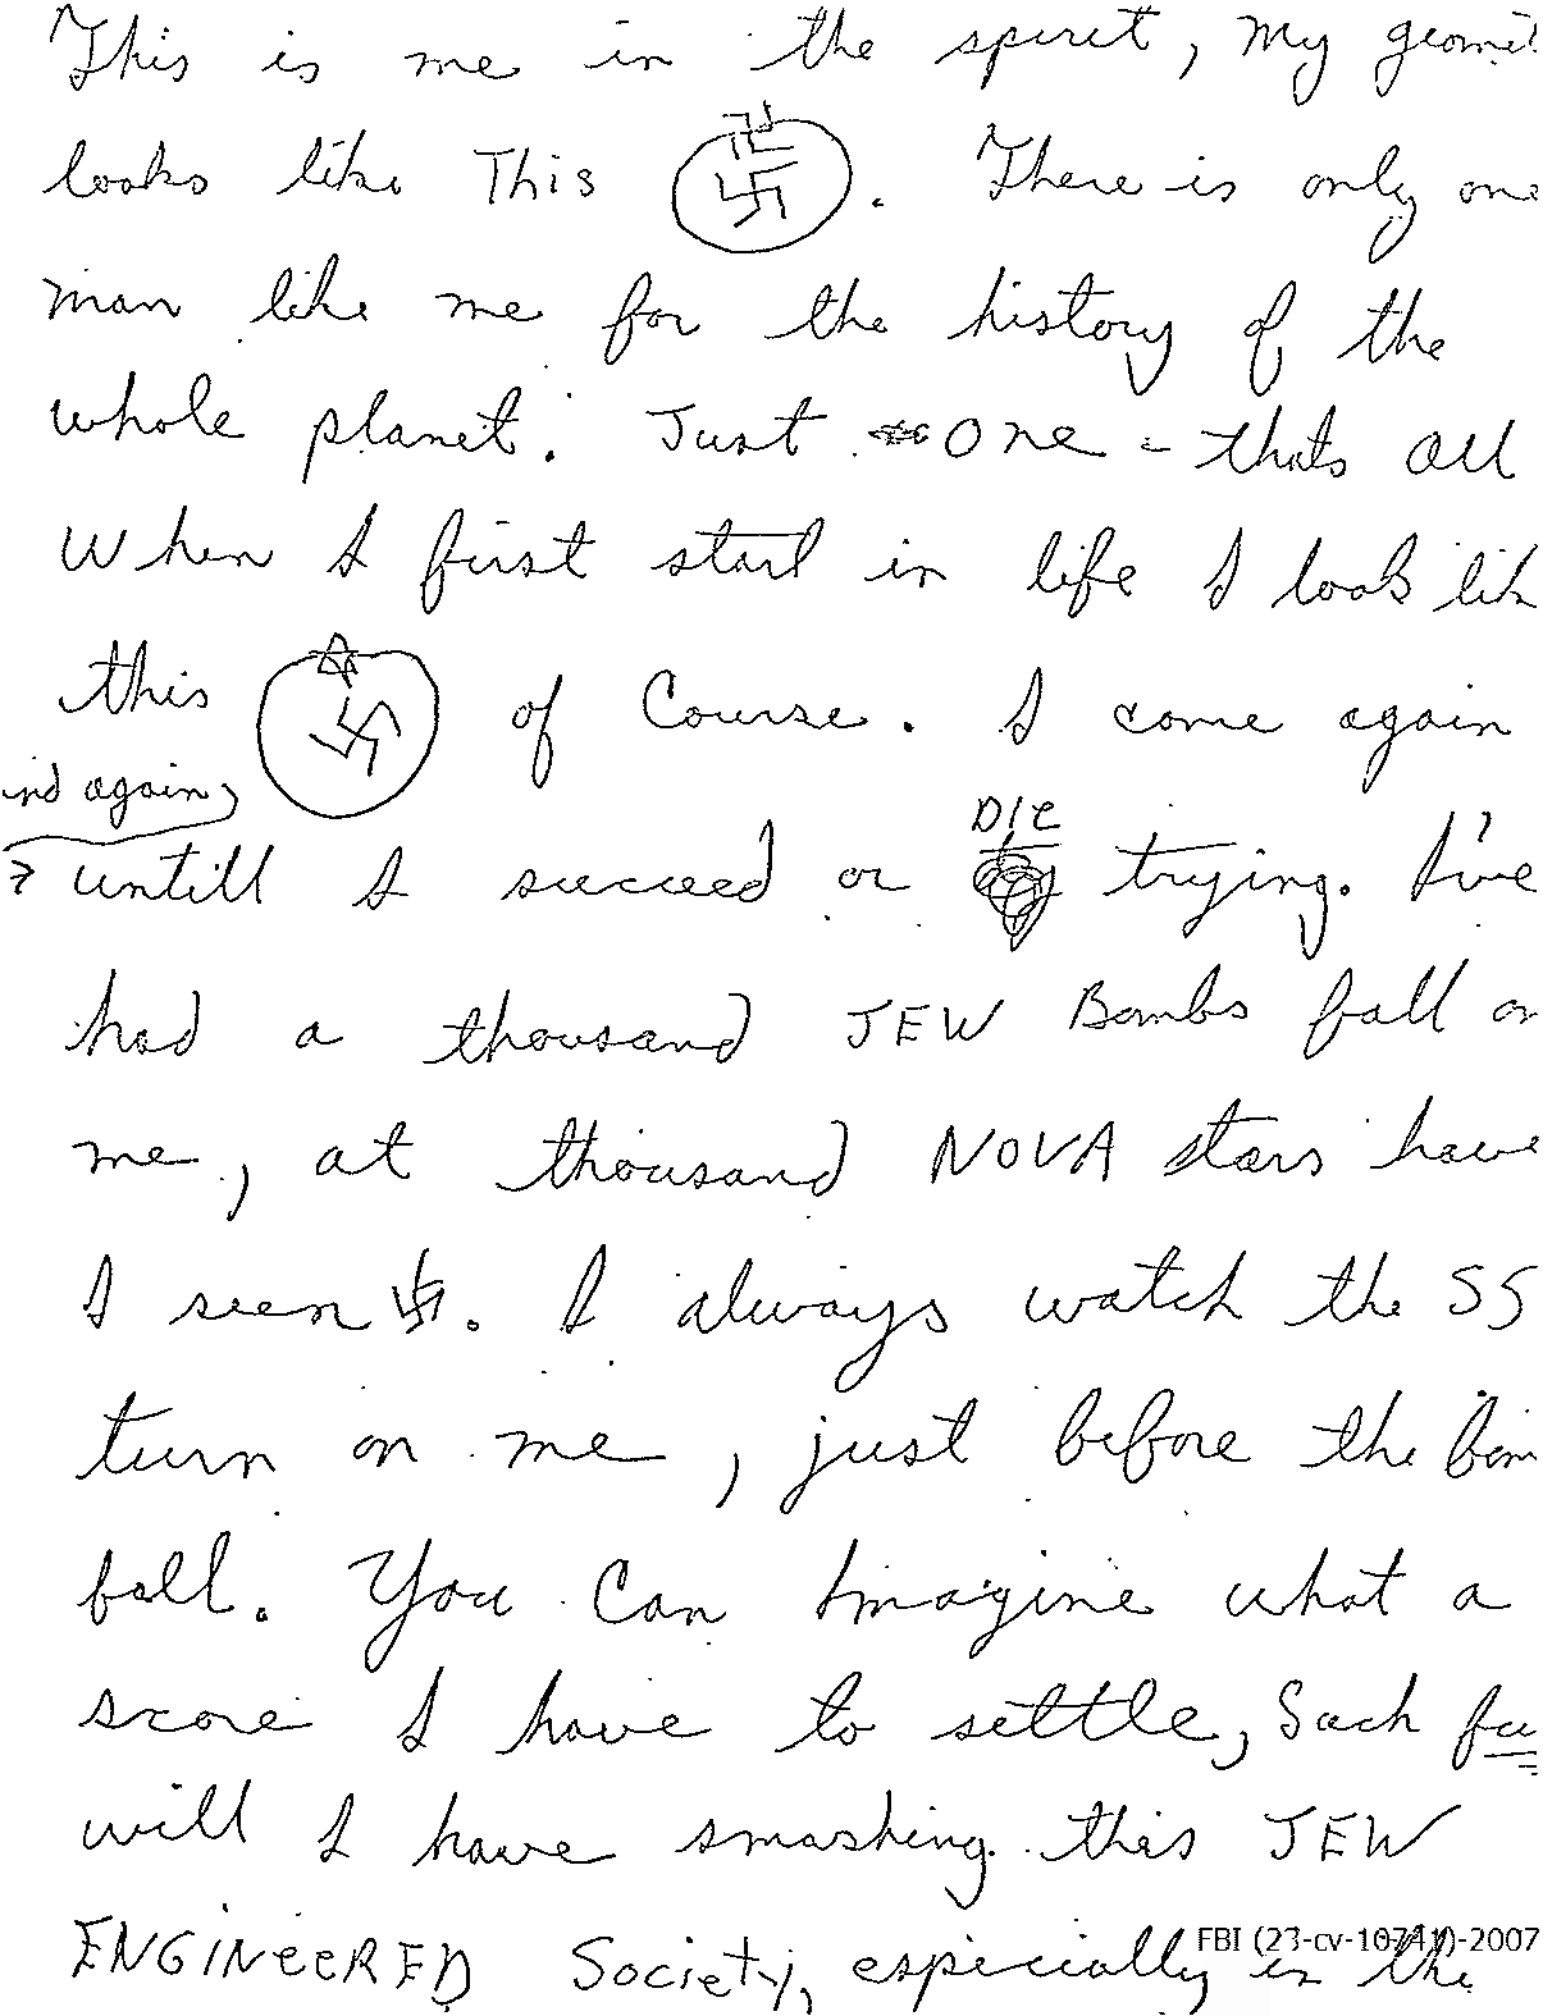 This is me in the spiret, My geomet
looks like This 卐 卐. There is only one
man like me for the history of the
whole planet. Just One - thats all
When I first start in life I look lik
this ✡ 卐 of Course. I come again
and again,
untill I succeed or DIE trying. I've
had a thousand JEW Bombs fall on
me, at thousand NOVA stars have
I seen 卐. I always watch the SS
turn on me, just before the bom
fall. You Can Imagine what a
score I have to settle, Such fu
will I have smashing this JEW
ENGINEERED Society, especially in the
FBI (23-cv-10741)-2007